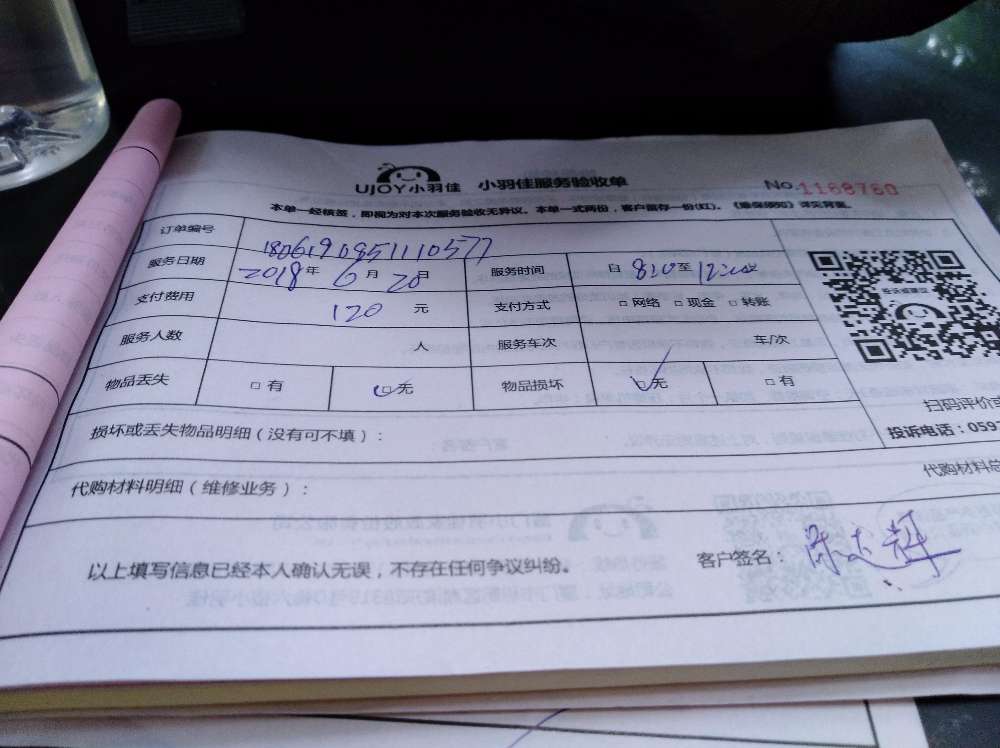 UJOY小羽佳 小羽佳服务验收单 No.1168760
本单一经核签，即视为对本次服务验收无异议。本单一式两份，客户留存一份(红)。《维保须知》详见背面。
订单编号 1806190851110577
服务日期 2018年6月20日 服务时间 自 8:20至12:20
支付费用 120 元 支付方式 □网络 □现金 □转账
服务人数 人 服务车次 车/次
物品丢失 □有 □无 物品损坏 □无 □有
扫码评价或
损坏或丢失物品明细（没有可不填）： 投诉电话：059
代购材料明细（维修业务）： 代购材料总
以上填写信息已经本人确认无误，不存在任何争议纠纷。 客户签名：